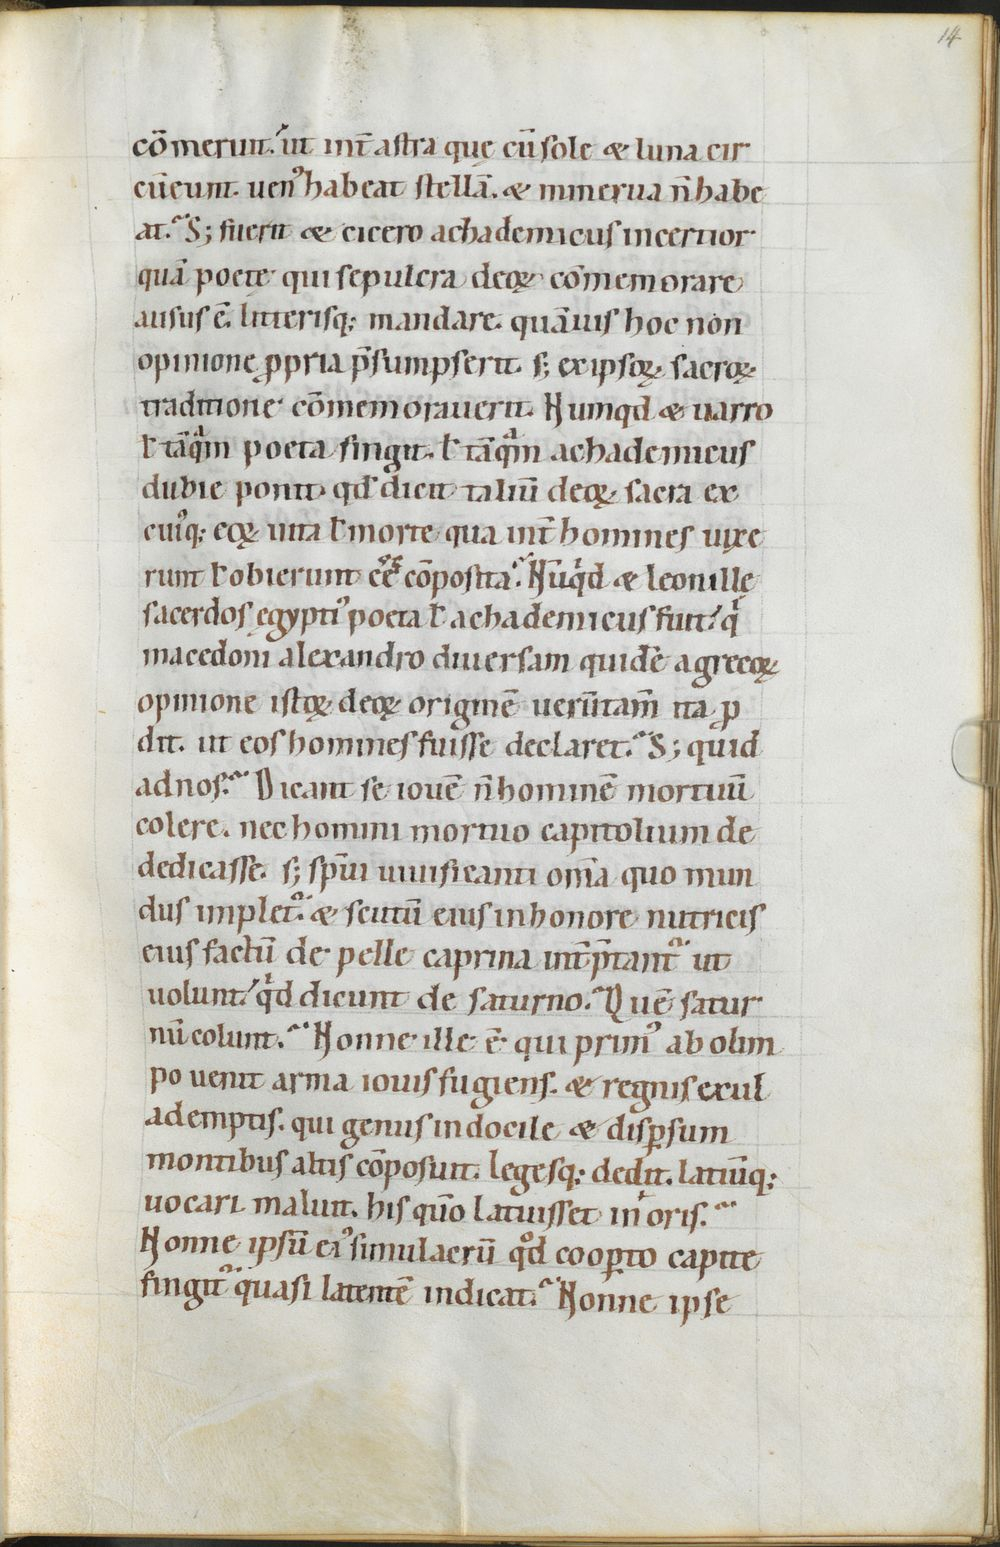 14
cōmeruit. ut int̄ astra quę cū sole & luna cir
cūeunt. uen᾿ habeat stellā. & minerua n̄ habe
at. S; fuerit & cicero achademicus incertior
quā poete qui sepulcra deoꝝ cōmemorare
ausus ē. litterisq; mandare. quāuis hoc non
opinione ꝓpria p̄sumpserit. s; ex ipsoꝝ sacroꝝ
traditione cōmemorauerit. Numqd & uarro
ł tāqᷓm poeta fingit. ł tāqᷓm achademicus
dubie ponit. qđ dicit taliū deoꝝ sacra ex
cui᾿q; eoꝝ uita ł morte qua int̄ homines uixe
runt ł obierunt eē᷒ cōposita. Nūqͥd & leon ille
sacerdos ęgypti᾿ poeta ł achademicus fuit. qͥ
macedoni alexandro diuersam quidē a grecoꝝ
opinione istoꝝ deoꝝ originē uerūtam̄ ita ꝓ
dit. ut eos homines fuisse declaret. S; quid
ad nos. Dicant se iouē n̄ hominē mortuū
colere. nec homini mortuo capitolium de
dedicasse. s; sp̄ui uiuificanti om̄a quo mun
dus implet᷑. & scutū eius in honore nutricis
eius factū de pelle caprina int̄p̄tant᷑ ut
uolunt. qͥd dicunt de saturno. Quē satur
nū colunt. Nonne ille ē qui prim᾿ ab olim
po uenit arma iouis fugiens. & regnis exul
ademptis. qui genus indocile & disꝑsum
montibus altis cōposuit. legesq; dedit. latiūq;
uocari maluit. his qūo latuisset in oris.
Nonne ipsū ei᾿ simulacrū qͦd cooꝑto capite
fingit᷑ quasi latentē indicat. Nonne ipse